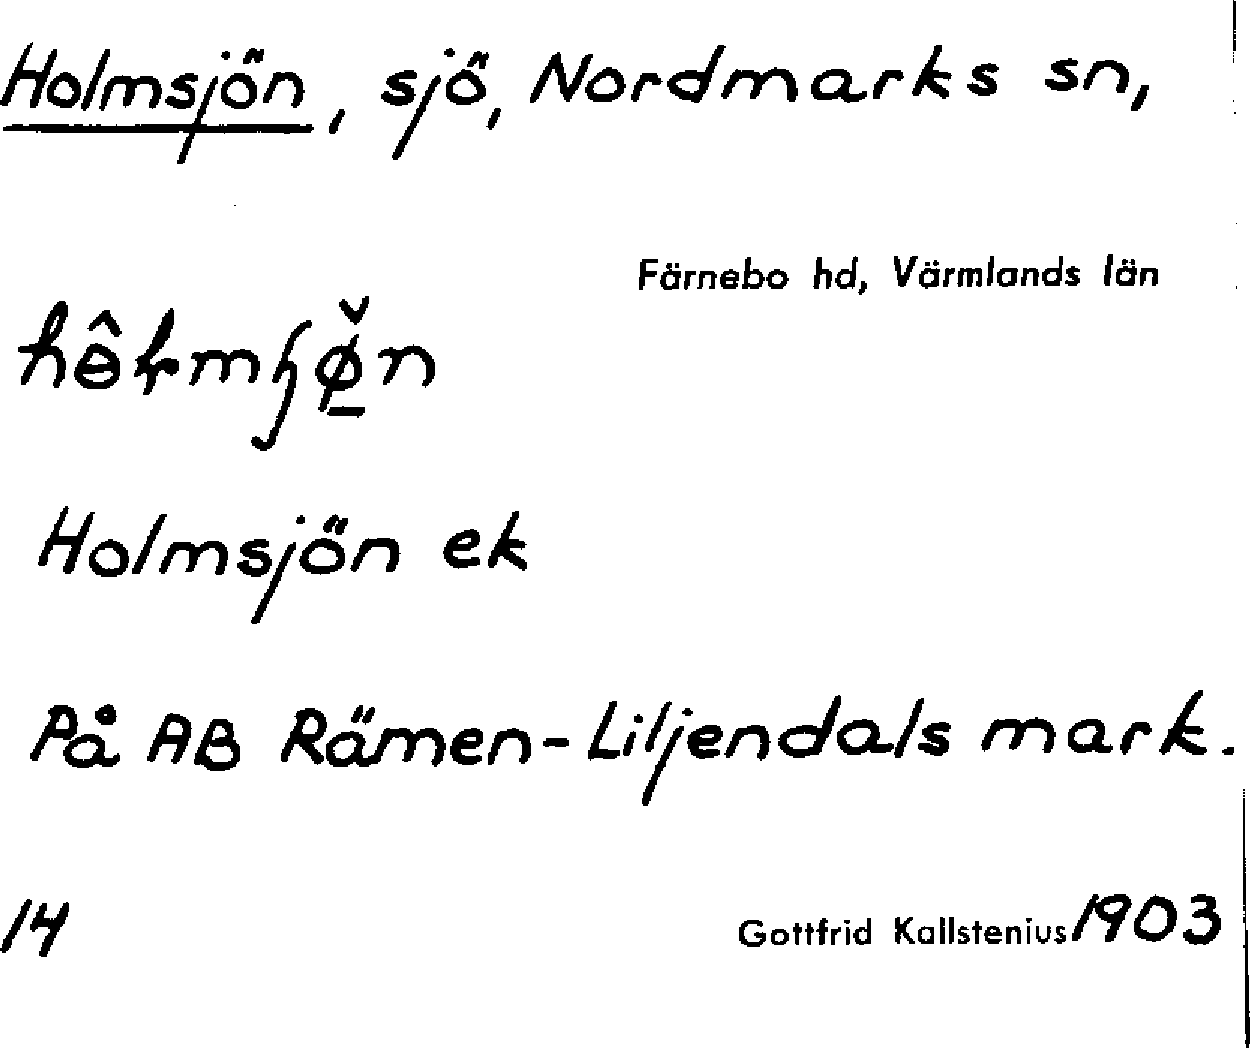 Holmsjön, sjö, Nordmarks sn,
Färnebo hd, Värmlands län
Holmsjön ek
På AB Rämen-Liljendals mark.
14
Gottfrid Kallstenius 1903